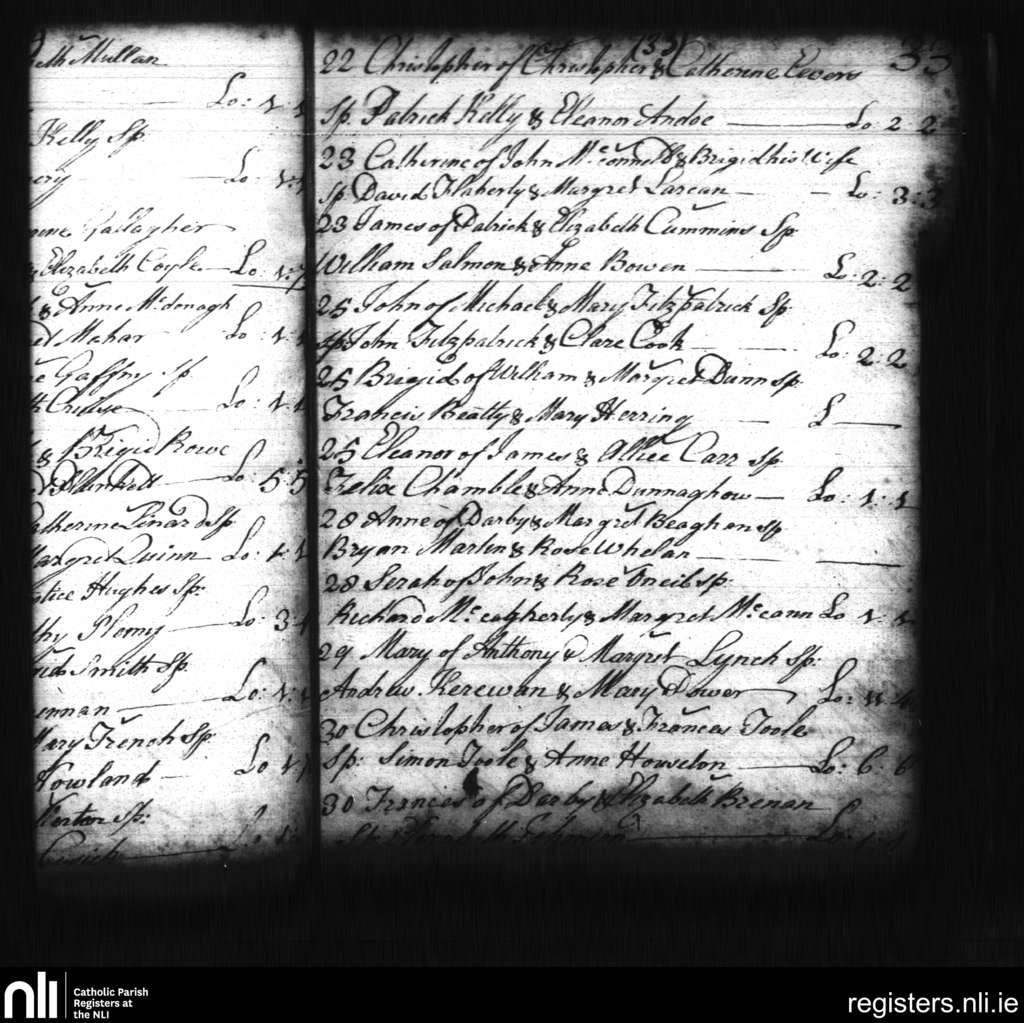 eth Mullan
Lo: 1: 1
Kelly Sp
ery Lo: 1:
Gallagher
Elizabeth Coyle Lo: 1:
& Anne McDonagh
Mahar Lo: 1: 1
Gaffny Sp
Cruise Lo: 1: 1
& Brigid Rowe
Plunkett Lo: 5: 5
atherine Sp
argret Quinn Lo: 1: 1
Hughes Sp:
thy Lo: 3:
Smith Sp
ennan Lo: 1:
Mary French Sp
Nowland Lo 1
Sp:
(33) 33
22 Christopher of Christopher & Catherine Evers
Sp. Patrick Kelly & Eleanor Andoe Lo. 2 2
23 Catherine of John McConnell & Brigid his Wife
Sp David Flaherty & Margret Larcan Lo: 3: 3
23 James of Patrick & Elizabeth Cummins Sp
William Salmon & Anne Bowen L: 2: 2
25 John of Michael & Mary Fitzpatrick Sp
Sp John Fitzpatrick & Clare Cook L: 2: 2
25 Brigid of William & Margret Dunn Sp
Francis Beatty & Mary Herring L
25 Eleanor of James & Allice Carr Sp
Felix Chamble & Anne Dunnaghow Lo: 1: 1
28 Anne of Darby & Margret Beaghan Sp
Bryan Martin & Rose Whelan
28 Serah of John & Rose Oneil Sp:
Richard & Margret McCann Lo 1: 1
29 Mary of Anthony & Margret Lynch Sp:
Andrew Kerewan & Mary Dower Lo:
30 Christopher of James & Frances Toole
Sp: Simon Toole & Anne Houston Lo: 6: 6
30 Frances of Darby & Elizabeth Brenan
Lo: 1: 1
nli Catholic Parish
Registers at
the NLI
registers.nli.ie